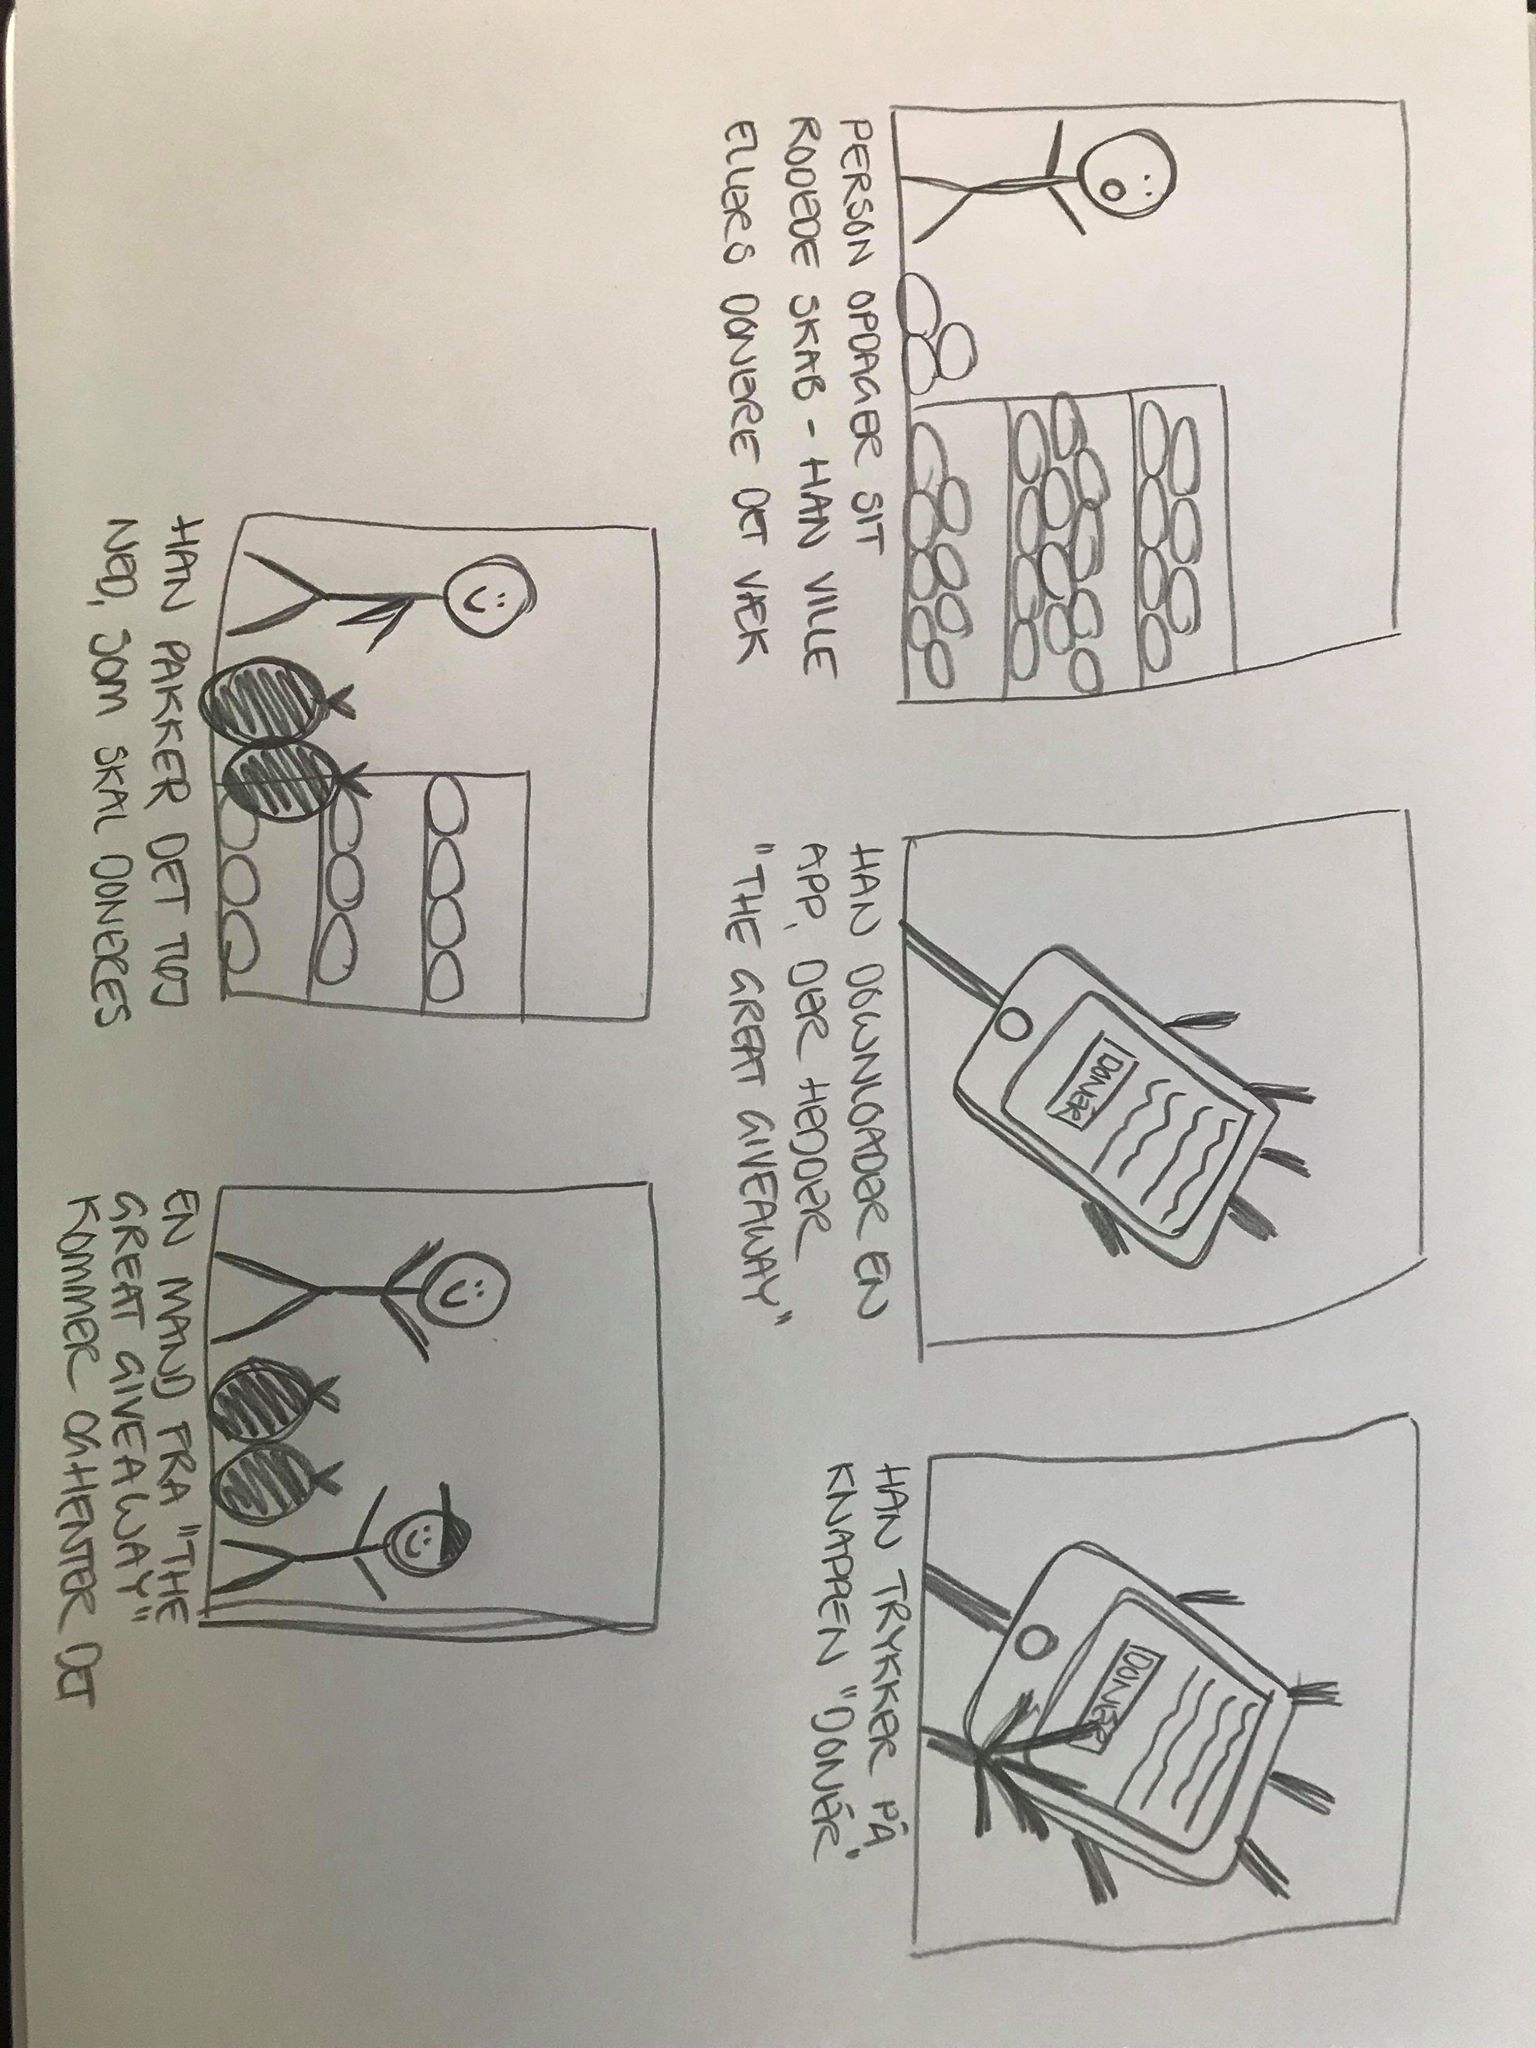 PERSON OPDAGER SIT
RODEDE SKAB - HAN VILLE
ELLERS DONERE DET VÆK
DONÉR
HAN DOWNLOADER EN
APP, DER HEDDER
"THE GREAT GIVEAWAY"
DONÉR
HAN TRYKKER PÅ
KNAPPEN "DONÉR"
HAN PAKKER DET TØJ
NED, SOM SKAL DONERES
EN MAND FRA "THE
GREAT GIVEAWAY"
KOMMER OG HENTER DET